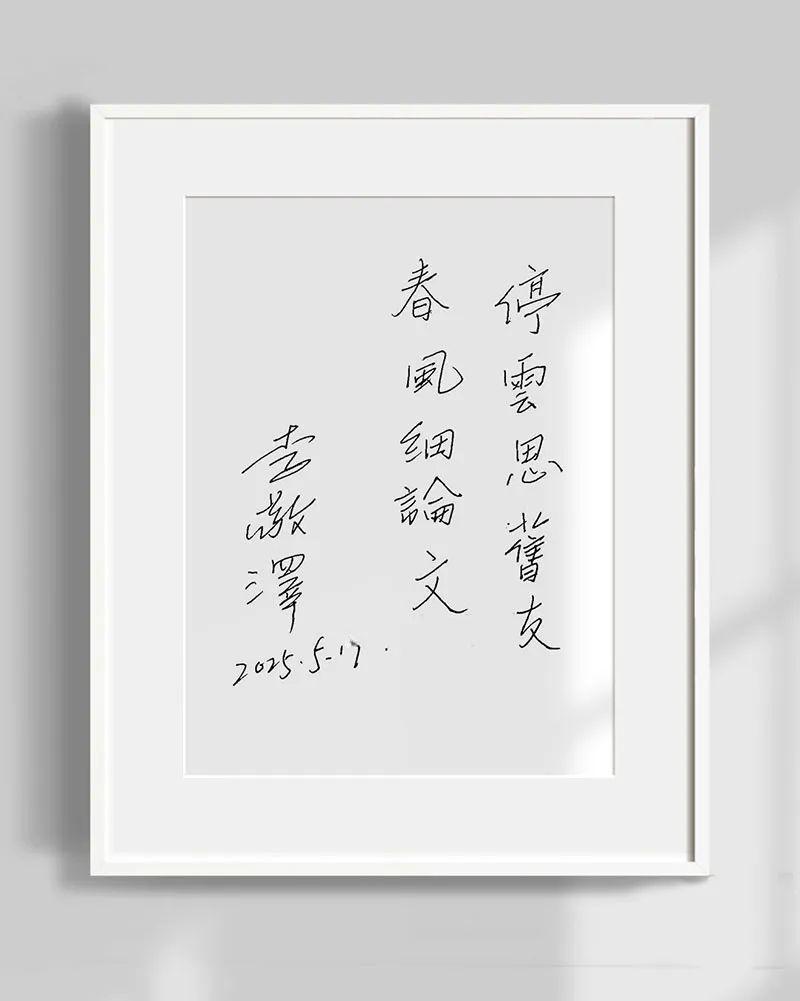 停雲思舊友
春風細論文
李敬澤
2025.5.17.